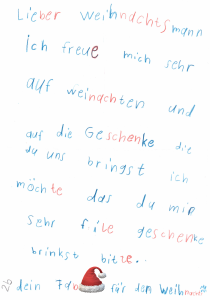 Lieber Weihnachtsmann
ich freue mich sehr
auf weinachten und
auf die Geschenke die
du uns bringst ich
möchte das du mir
sehr file geschenke
brinkst bitte..
dein für den Weihn